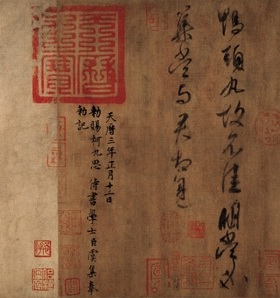 鴨頭丸故不佳明當必
集當与君相見
天曆三年正月十二日
勅賜柯九思侍書學士臣虞集奉
勅記
天曆之寶